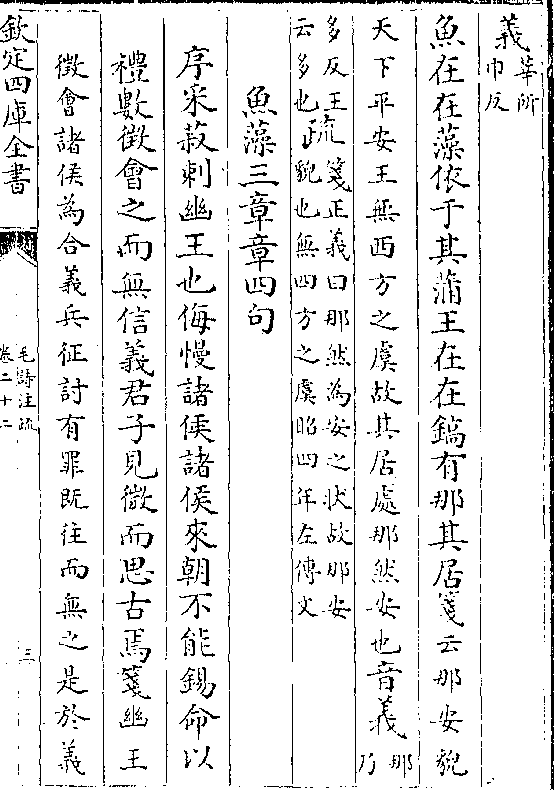 義莘所
巾反
魚在在藻依于其蒲王在在鎬有那其居箋云那安貌
天下平安王無西方之虞故其居處那然安也音義那乃
多反王疏箋正義曰那然為安之狀故那安
云多也貌也無四方之虞昭四年左傳文
魚藻三章章四句
序采菽刺幽王也侮慢諸侯諸侯來朝不能錫命以
禮數徵會之而無信義君子見微而思古焉箋幽王
徵會諸侯為合義兵征討有罪既往而無之是於義
欽定四庫全書
毛詩注疏
卷二十二
三